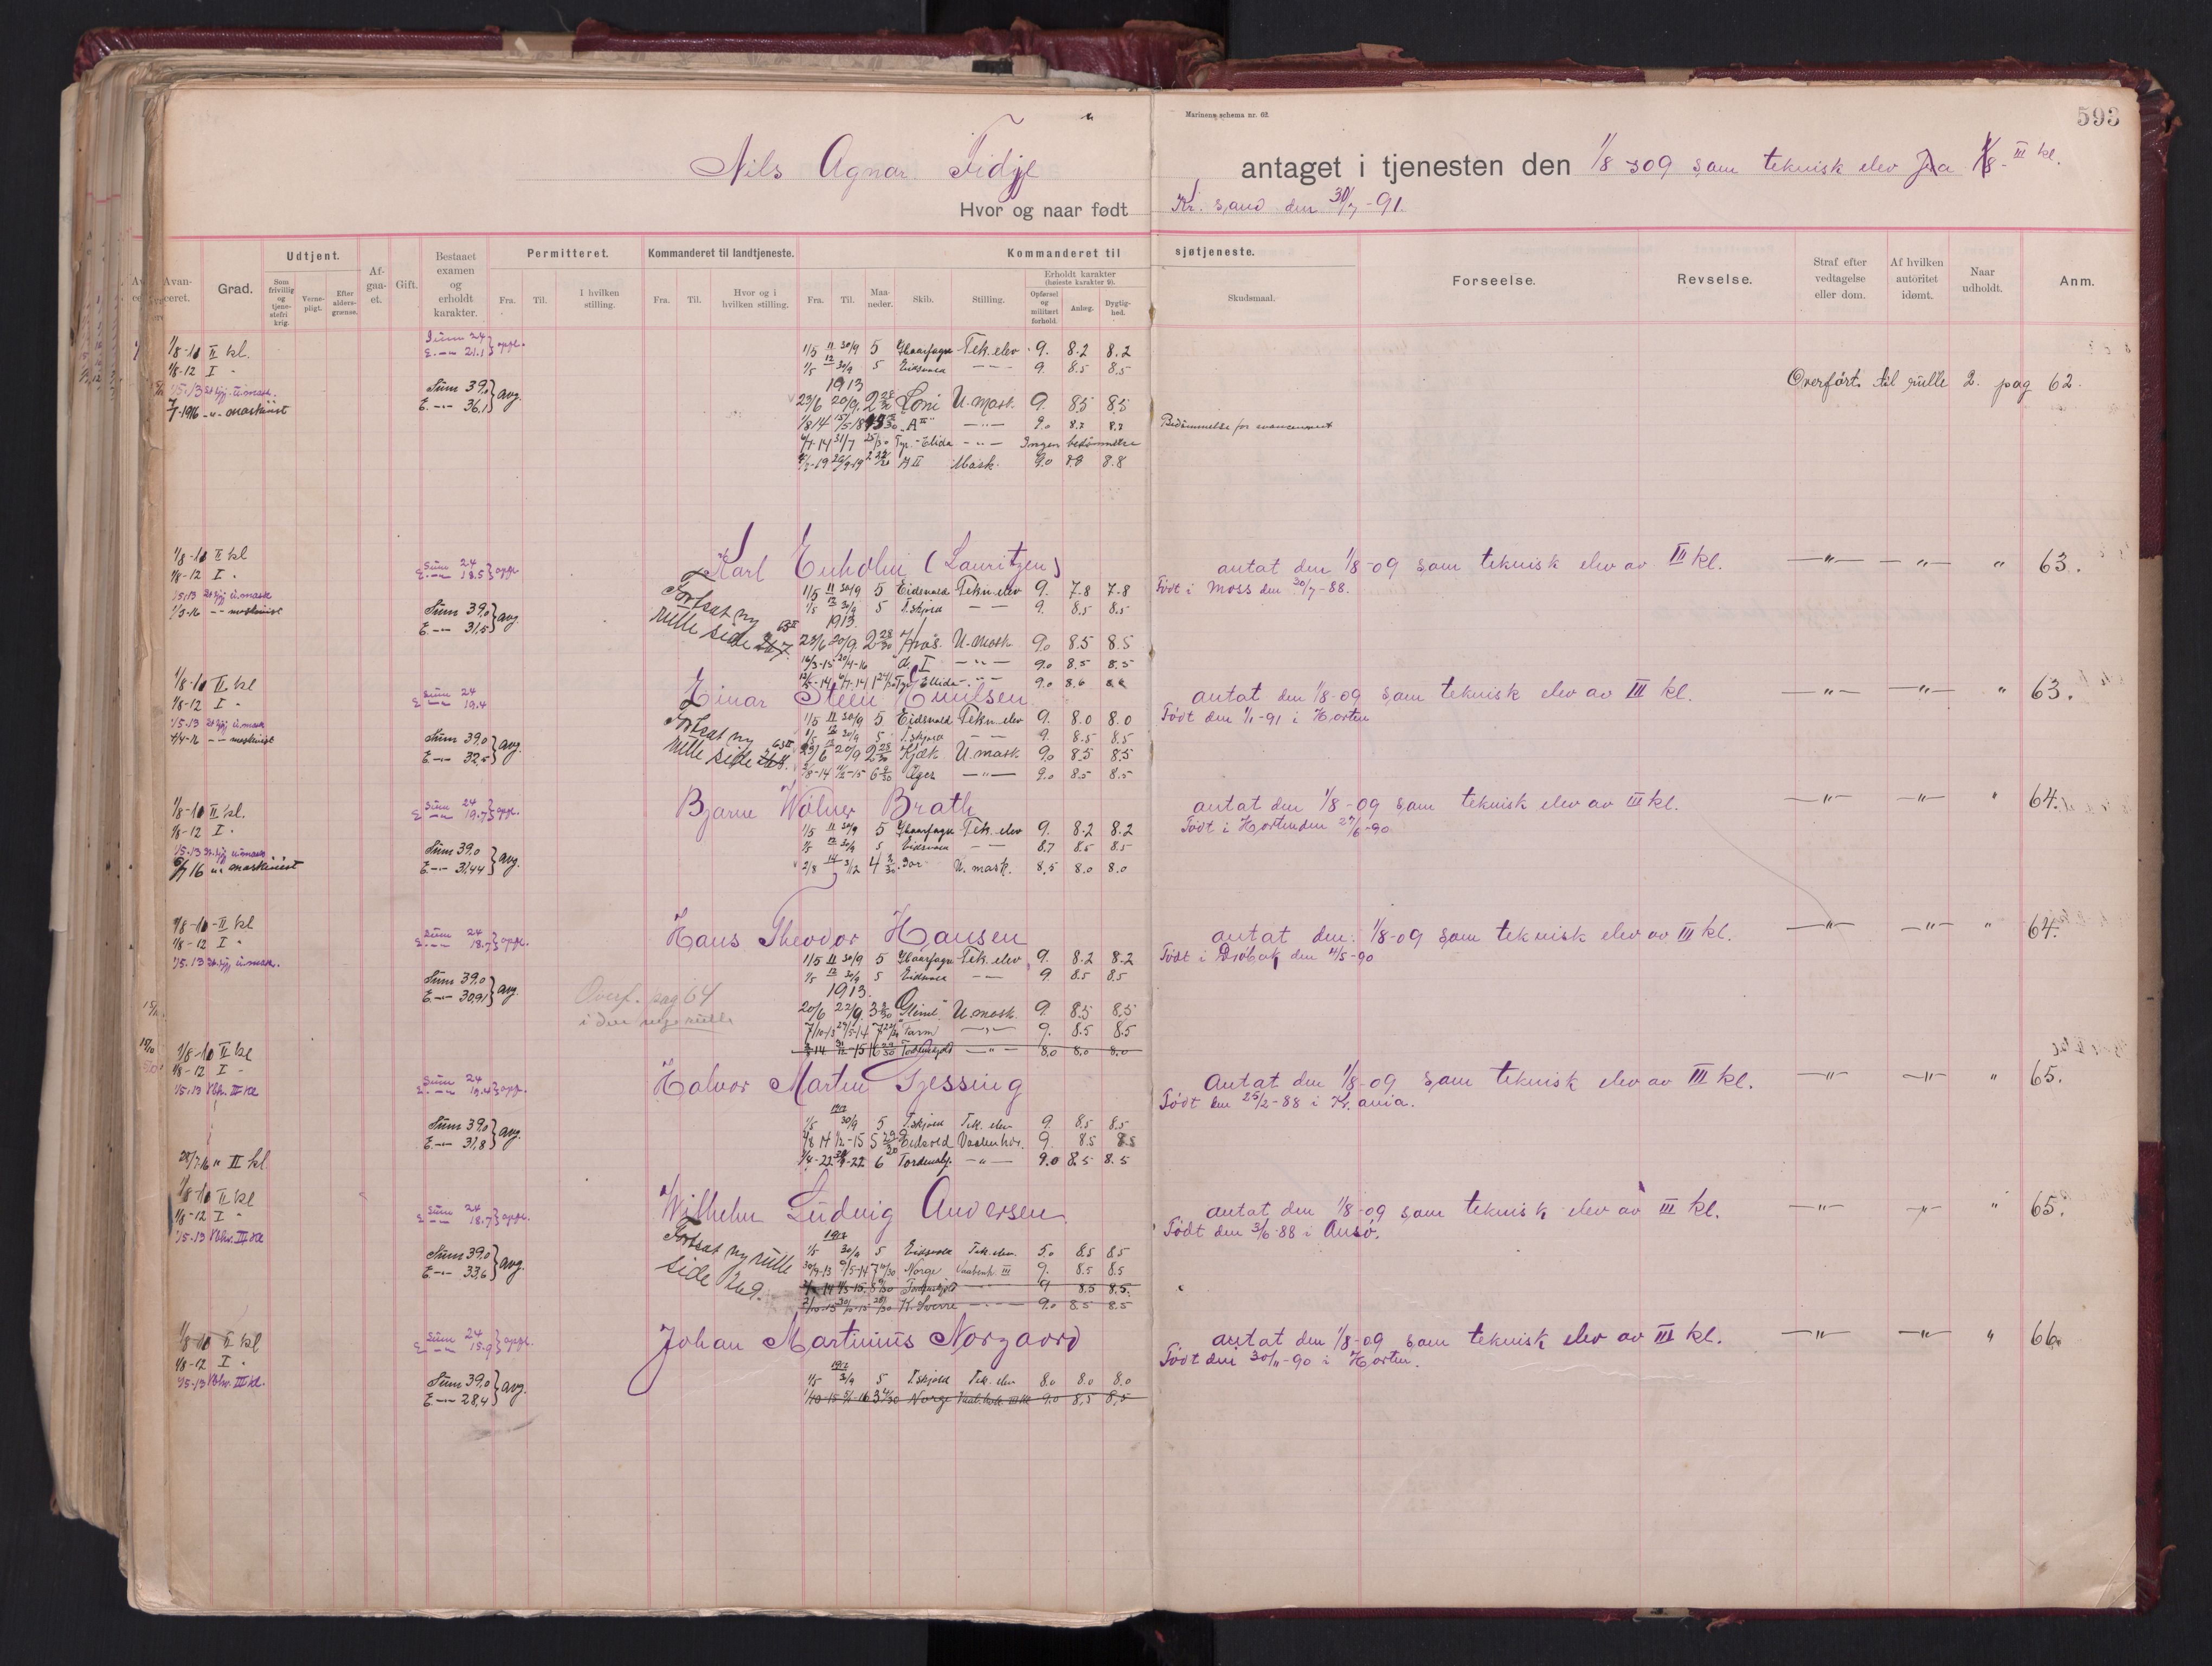 Marinens schema nr. 62
593
Nils Agnar Fidje antaget i tjenesten den 1/8 309 som teknisk elev fra 1/8- III kl.
Hvor og naar født Kr. sand den 30/7-91.
Udtjent. Permitteret. Kommanderet til landtjeneste. Kommanderet til sjøtjeneste.
Avanceret. Grad. Som frivillig og tjenestefri krig. Vernepligt. Efter aldersgrænse. Afgaaet. Gift. Bestaaet examen og erholdt karakter. Fra. Til. I hvilken stilling. Fra. Til. Hvor og i hvilken stilling. Fra. Til. Maaneder. Skib. Stilling. Erholdt karakter (høieste karakter 9). Opførsel og militært forhold. Anlæg. Dygtighed. Skudsmaal. Forseelse. Revselse. Straf efter vedtagelse eller dom. Af hvilken autoritet idømt. Naar udholdt. Anm.
1/8-10 II kl. Sum 24 E. -"- 21.1 } oppl. 1/5 11 30/9 5 Haarfagre Tek. elev 9. 8.2 8.2
1/8-12 I " 1/5 12 30/9 5 Eidsvold -"- 9. 8.5 8.5
Overført til rulle 2. pag 62.
1/5-13 u.mask. Sum 39.0 E. -"- 36.1 } avg. 1913
7/7-1916 -"- maskinist 23/6 20/9. 2 28/30 Loni U-Mask. 9. 8.5 8.5
9.0 8.2 8.2 Bedømmelse for avancement
Ellida -"- Ingen bedømmelse
A II Mask. 9.0 8.8 8.8
1/8-10 II kl Karl Enholm (Lauritzen) antat den 1/8-09 som teknisk elev av III kl. -"- -"- " 63.
1/8-12 I " Sum 24 E. -"- 18.5 } oppl. 1/5 11 30/9 5 Eidsvold Tekn. elev 9. 7.8 7.8 Født i Moss den 30/7-88.
1/5 12 30/9 5 T.skjold -"- 9. 8.5 8.5
1/5.13 u.mask Fortsat ny rulle side 1913.
1/3-16 -"- maskinist Sum 39.0 E. -"- 31.5 } avg 23/6 20/9. 2 28/30 U-Mask. 9.0 8.5 8.5
16/3-15 20/4-16 A. I -"- 9.0 8.5 8.5
Ellida -"- 9.0 8.6 8.6
1/8-10 II kl Einar Steen Knudsen antat den 1/8-09 som teknisk elev av III kl. -"- -"- " 63.
1/8-12 I " Sum 24 E -"- 19.4 1/5 11 30/9 5 Eidsvold Tekn. elev 9. 8.0 8.0 Født den 1/1-91 i Horten
1/5 12 30/9 5 T.skjold -"- 9. 8.5 8.5
1/5.13 u.mask Fortsat ny rulle side
4/4-16 -"- maskinist Sum 39.0 E. -"- 32.5 } avg. 23/6 20/9 2 28/30 Kjæk U.mask 9.0 8.5 8.5
Æger -"- 9.0 8.5 8.5
1/8-10 II kl. Bjarne Wølner Brath antat den 1/8-09 som teknisk elev av III kl. -"- -"- " 64.
1/8-12 I " Sum 24 E -"- 19.7 } oppl. 1/5 11 30/9 5 Haarfagre Tek. elev 9. 8.2 8.2 Født i Horten den 27/6-90
1/5 12 30/9 5 Eidsvold -"- 8.7 8.5 8.5
1/5.13 u.mask Sum 39.0 E. -"- 31.44 } avg.
16 -"- maskinist 2/8 14 3/12 4 2/30 Gor U. mask. 8.5 8.0 8.0
1/8-10 II kl Hans Theodor Hansen antat den 1/8-09 som teknisk elev av III kl. -"- -"- " 64.
1/8-12 I " Sum 24 E. -"- 18.7 } oppl. 1/5 11 30/9 5 Haarfagre Tek. elev 9. 8.2 8.2 Født i Drøbak den 11/5-90
1/5 12 30/9 5 Eidsvold -"- 9 8.5 8.5
1/5.13 u.mask. Sum 39.0 E. -"- 30.91 } avg. 1913.
Overf. pag 64 i den nye rulle 20/6 22/9. 3 3/30 Glimt. U.mask. 9. 8.5 8.5
Farm -"- 9. 8.5 8.5
Tordenskjold -"- 8.0 8.0 8.0
1/8-10 II kl Halvor Martin Gjessing Antat den 1/8-09 som teknisk elev av III kl. -"- -"- " 65.
1/8-12 I " Sum 24 E. -"- 19.4 } oppl. Født den 25/2-88 i Kr.ania.
1/5.13 Vbhv. III kl 1912
1/5 30/9 5 T.skjold Tek. elev 9. 8.5 8.5
Sum 39.0 E. -"- 31.8 } avg. Eidsvold Vaabenhv. 9. 8.5 8.5
28/7-16 " II kl 1/4-22 6 Tordenskj. -"- 9.0 8.5 8.5
1/8-10 II kl Wilhelm Ludvig Andersen antat den 1/8-09 som teknisk elev av III kl. -"- -"- " 65.
1/8-12 I " Sum 24 E -"- 18.7 } oppl. Født den 3/6-88 i
1/5.13 Vbhv. III kl Fortsat ny rulle side 269. 1912
1/5 30/9 5 Eidsvold Tek. elev. 5.0 8.5 8.5
Sum 39.0 E. -"- 33.6 } avg. Norge Vaabenh. III 9. 8.5 8.5
Tordenskjold -"- 9 8.5 8.5.
K. Sverre -"- 9.0 8.5 8.5
1/8-10 II kl Johan Martinius Norgaard antat den 1/8-09 som teknisk elev av III kl. -"- -"- " 66.
1/8-12 I " Sum 24 E -"- 15.9 } oppl. Født den 30/11-90 i Horten.
1/5-13 Vbhv. III kl. 1912
Sum 39.0 E. -"- 28.4 } avg. 1/5 5 T.skjold Tek. elev 8.0 8.0 8.0
Norge 9.0 8.5 8.5